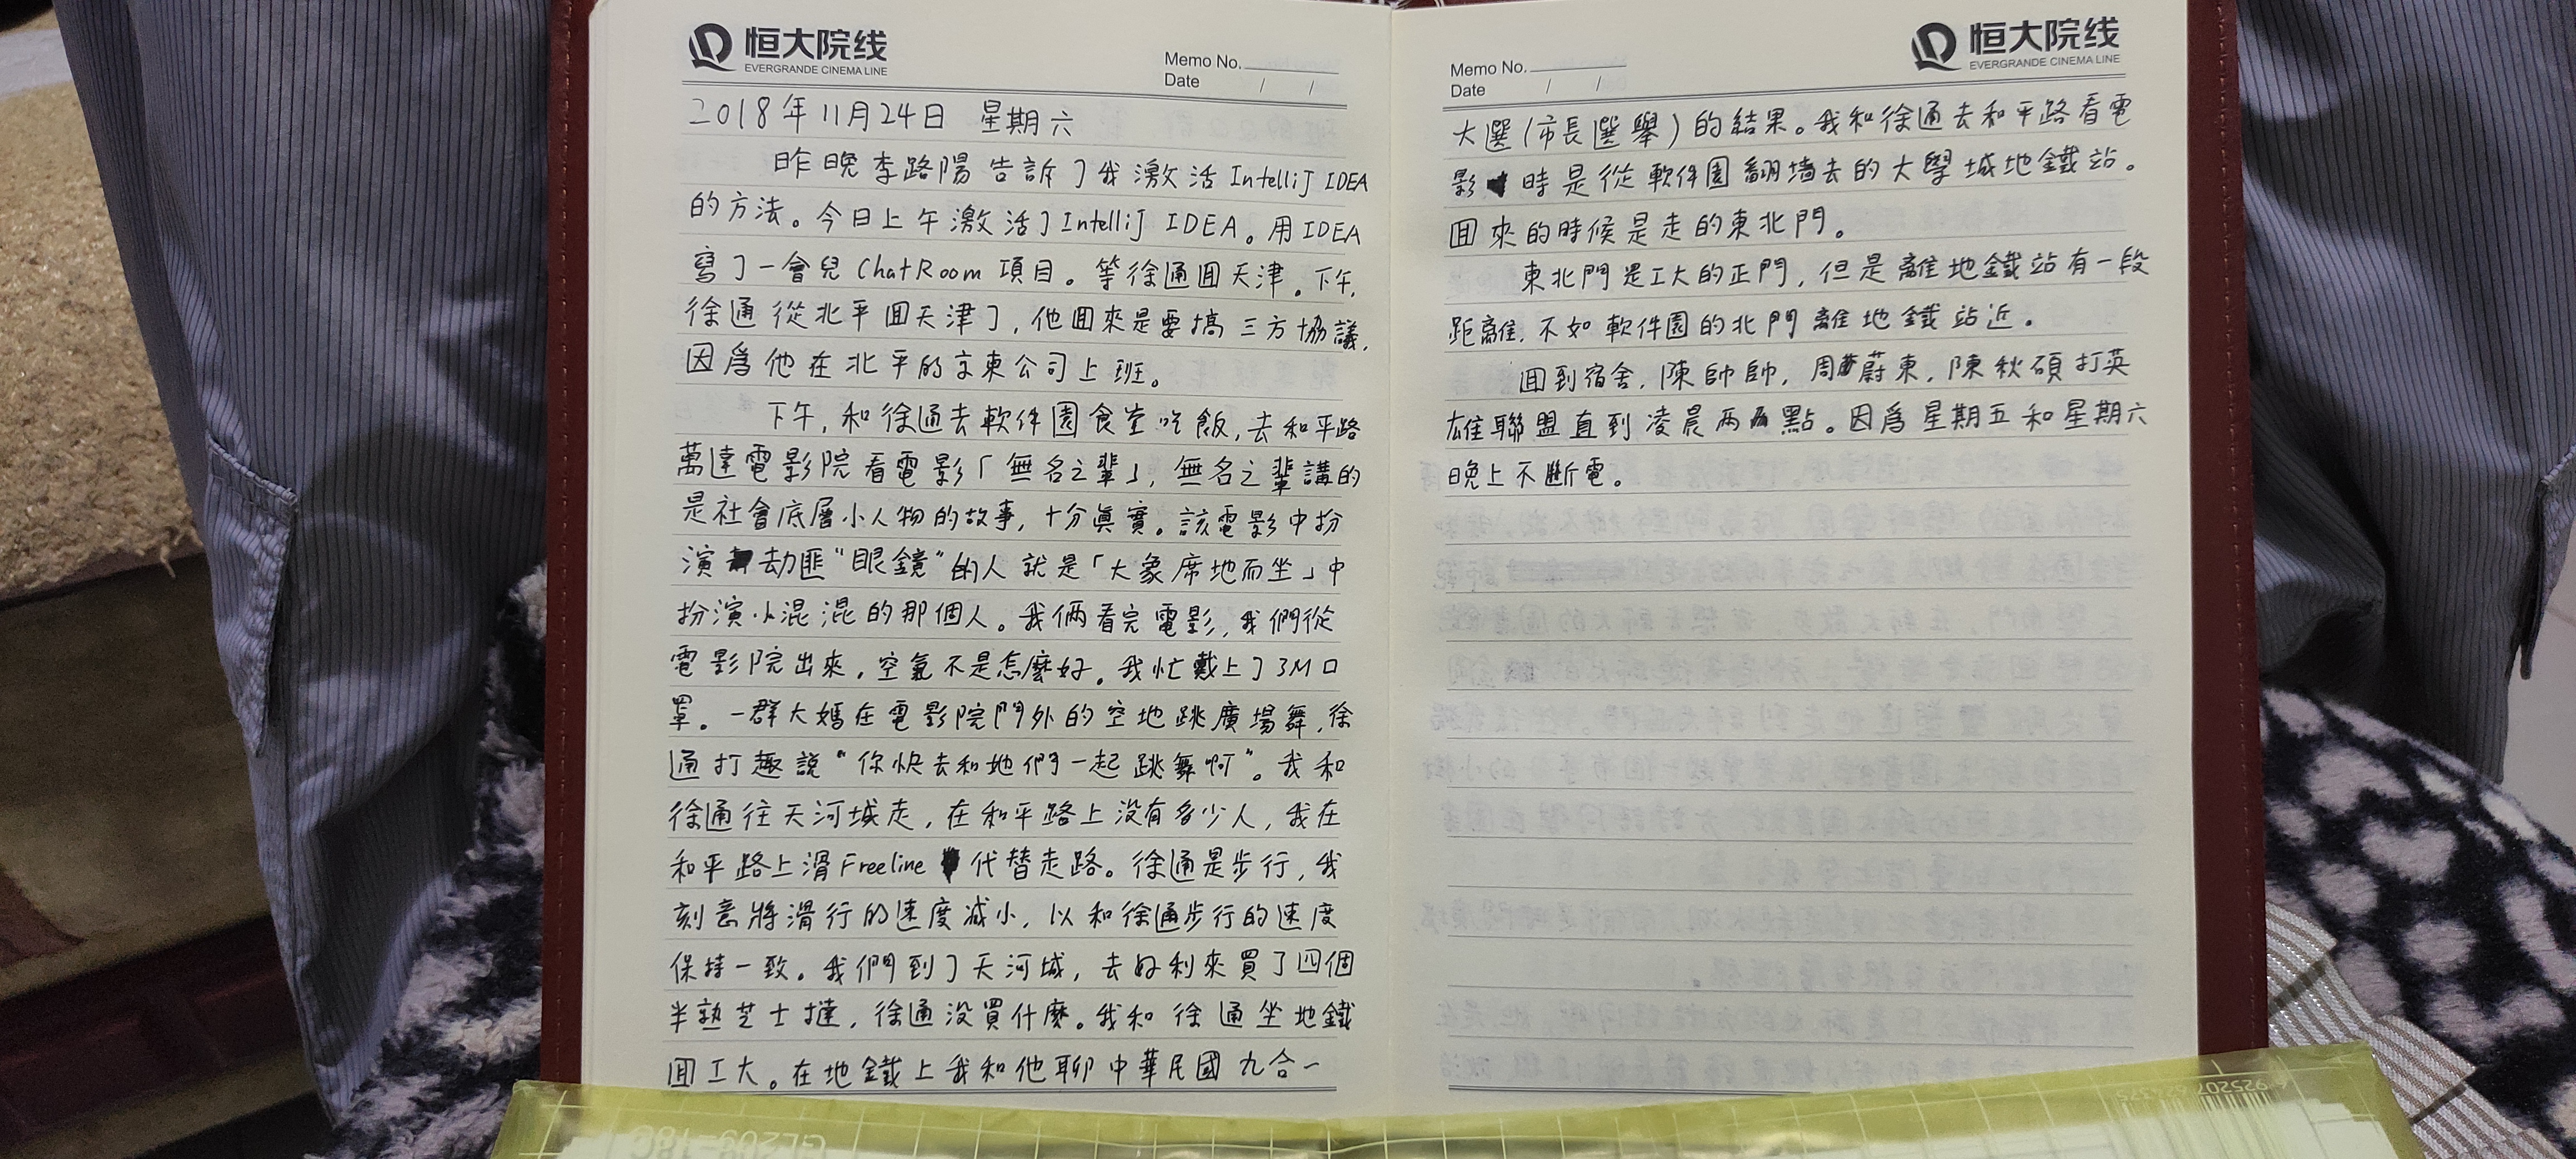 恒大院线
EVERGRANDE CINEMA LINE
Memo No.
Date / /
2018年11月24日 星期六
昨晚李路陽告訴了我激活IntelliJ IDEA
的方法。今日上午激活了IntelliJ IDEA。用IDEA
寫了一會兒ChatRoom項目。等徐通囬天津。下午,
徐通從北平囬天津了,他囬來是要搞三方協議,
因爲他在北平的京東公司上班。
下午,和徐通去軟件園食堂吃飯,去和平路
萬達電影院看電影「無名之輩」,無名之輩講的
是社會底層小人物的故事,十分真實。該電影中扮
演劫匪“眼鏡”的人就是「大象席地而坐」中
扮演小混混的那個人。我倆看完電影,我們從
電影院出來,空氣不是怎麼好。我忙戴上了3M口
罩。一群大媽在電影院門外的空地跳廣場舞,徐
通打趣說“你快去和她們一起跳舞啊”。我和
徐通往天河城走,在和平路上没有多少人,我在
和平路上滑Freeline代替走路。徐通是步行,我
刻意將滑行的速度减小,以和徐通步行的速度
保持一致。我們到了天河城,去好利來買了四個
半熟芝士撻,徐通没買什麽。我和徐通坐地鐵
囬工大。在地鐵上我和他聊中華民國九合一
恒大院线
EVERGRANDE CINEMA LINE
Memo No.
Date / /
大選(市長選舉)的結果。我和徐通去和平路看電
影時是從軟件園翻墻去的大學城地鐵站。
囬來的時候是走的東北門。
東北門是工大的正門,但是離地鐵站有一段
距離,不如軟件園的北門離地鐵站近。
囬到宿舍,陳帥帥,周蔚東,陳秋碩打英
雄聯盟直到凌晨兩點。因爲星期五和星期六
晚上不斷電。